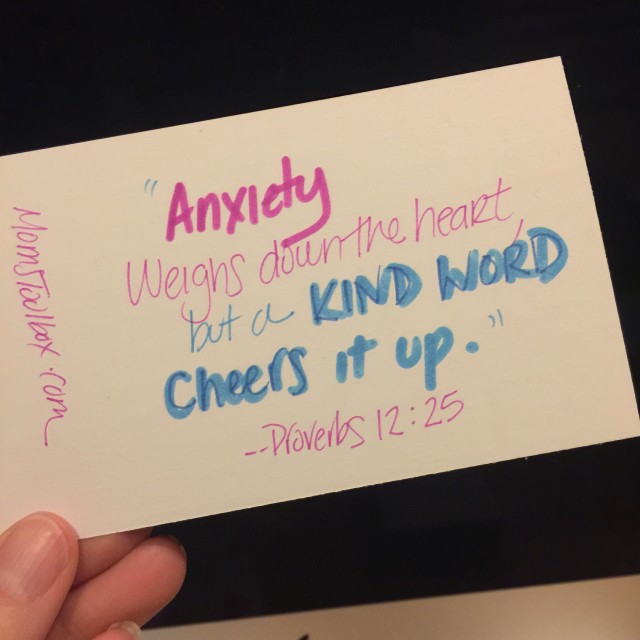 "Anxiety
Weighs down the heart,
but a KIND WORD
Cheers it up."
--Proverbs 12:25
MomsToolbox.com